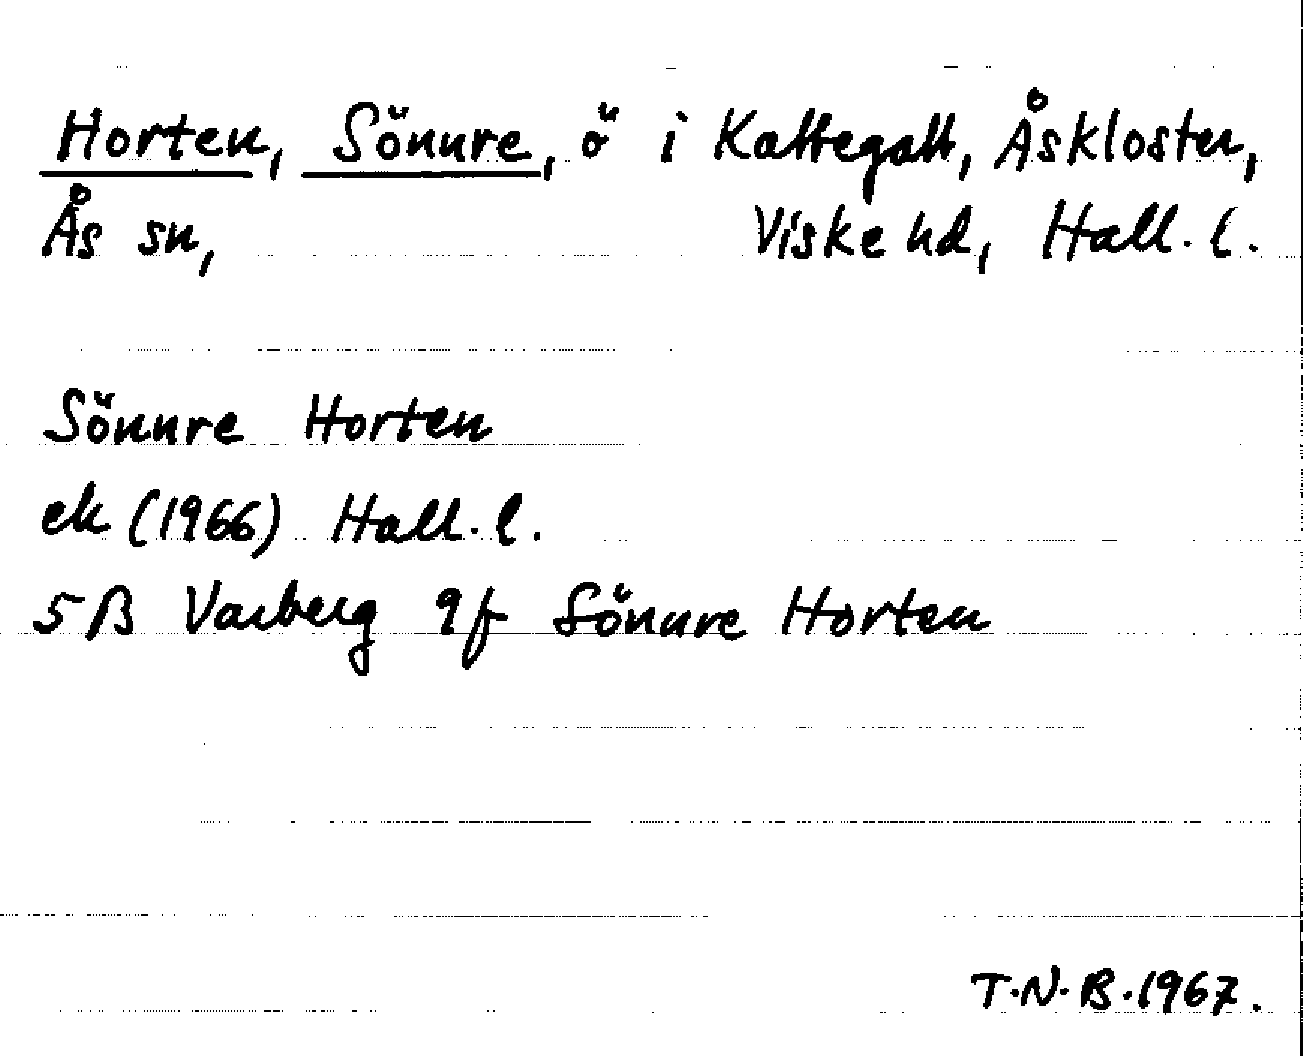 Horten, Sönnre, ö i Kattegatt, Åskloster,
Ås sn, Viske hd, Hall. l.
Sönnre Horten
ek (1966) Hall. l.
5B Varberg 9f Sönnre Horten
T.N.B. 1967.